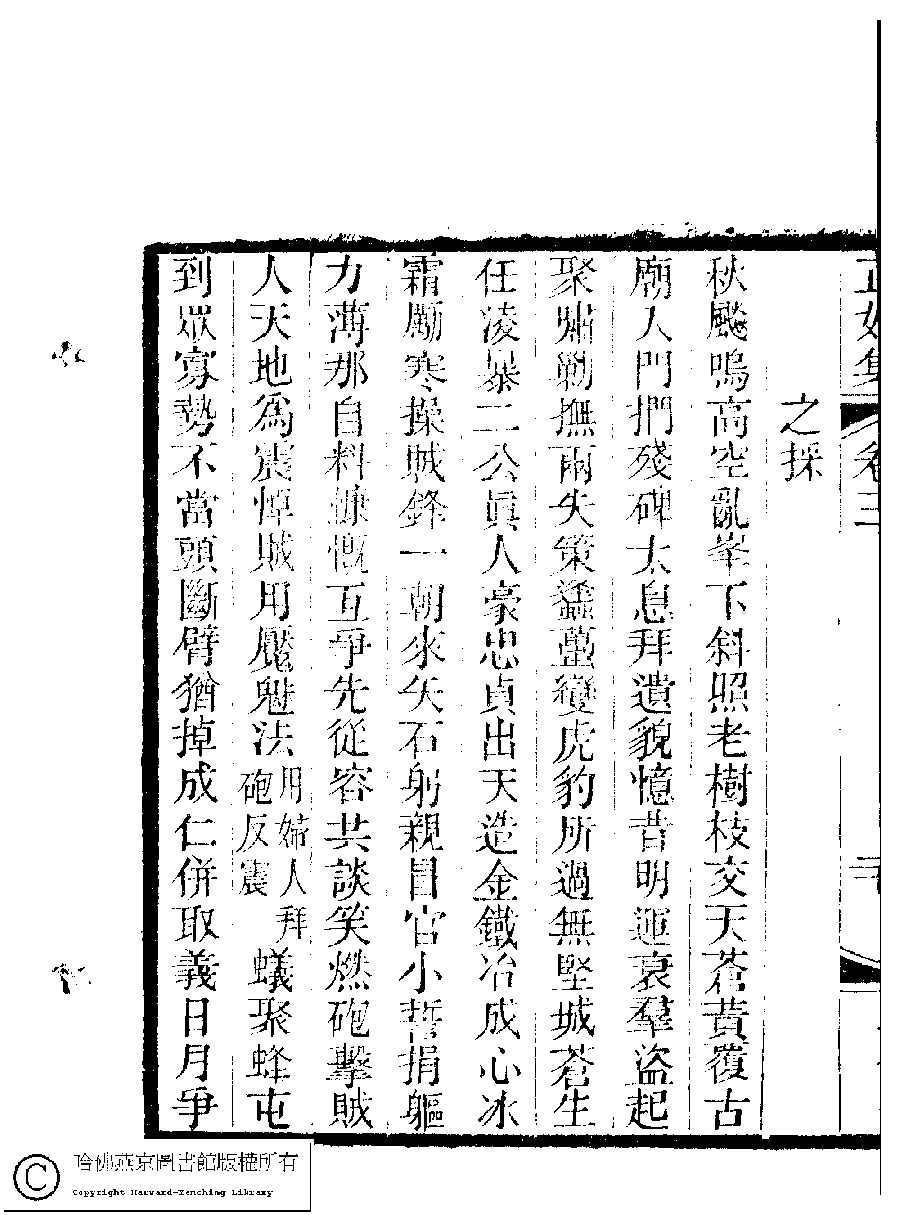 正始集 卷三 二十
之採
秋飈鳴高空亂峯下斜照老樹枝交天蒼黃覆古
廟入門捫殘碑太息拜遺貌憶昔明運衰羣盜起
聚嘯勦撫兩失策蠭蠆變虎豹所過無堅城蒼生
任凌暴二公眞人豪忠貞出天造金鐵冶成心冰
霜勵寒操賊鋒一朝來矢石躬親冒官小誓捐軀
力薄那自料慷慨互爭先從容共談笑燃砲擊賊
人天地為震悼賊用魘魅法用婦人拜砲反震蟻聚蜂屯
到眾寡勢不當頭斷臂猶掉成仁併取義日月爭
哈佛燕京圖書館版權所有
Copyright Harvard-Yenching Library